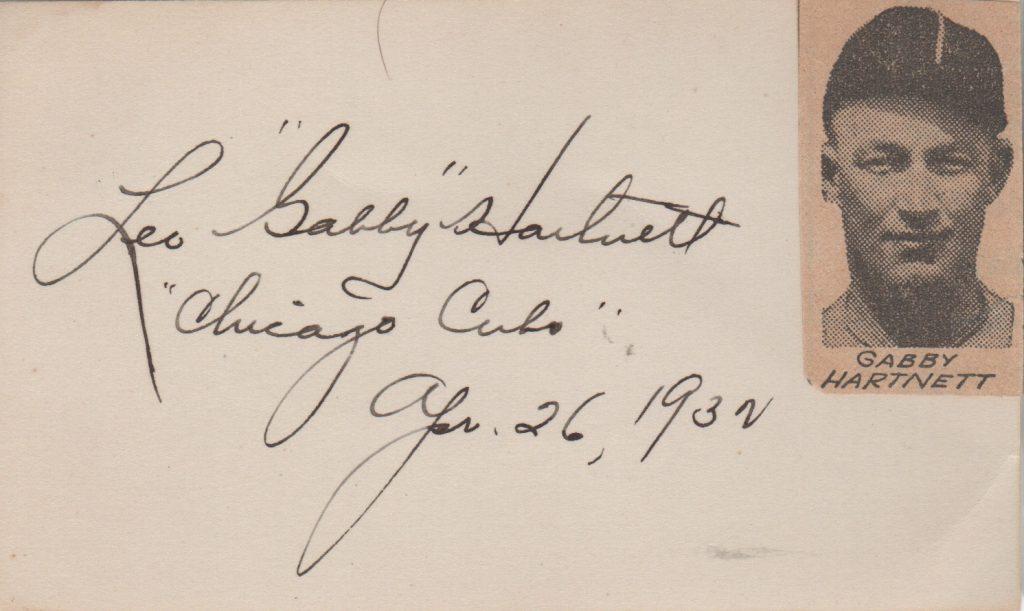 Leo "Gabby" Hartnett
"Chicago Cubs"
Apr. 26, 1932
GABBY
HARTNETT